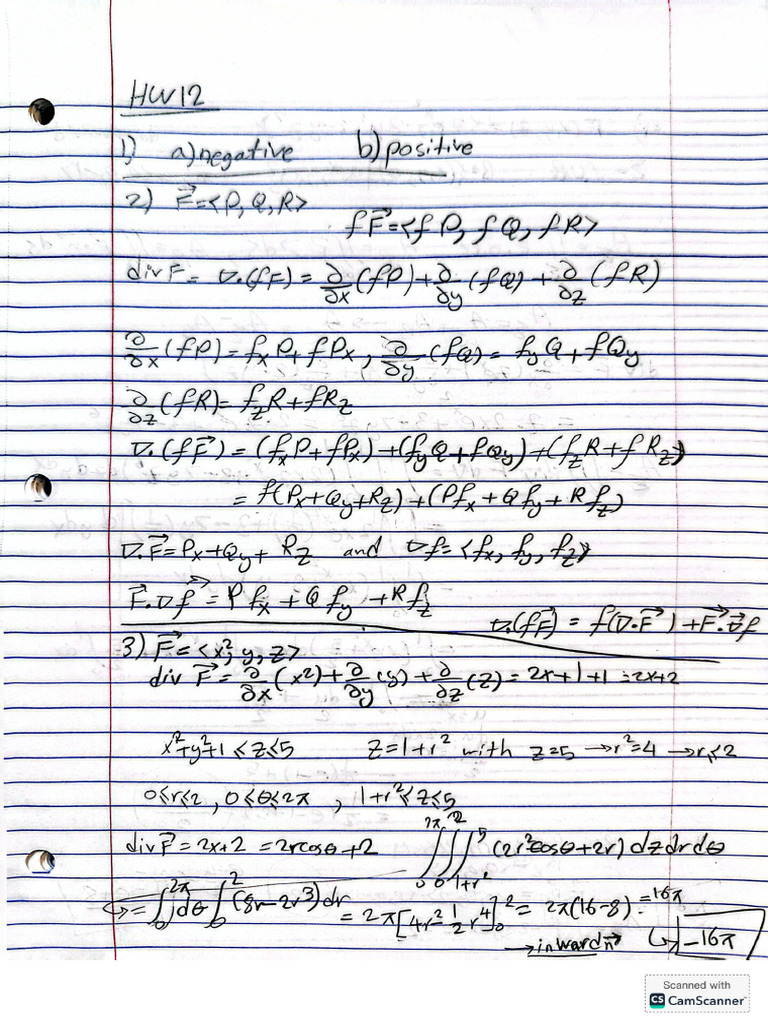 HW12
1) a) negative b) positive
2) F⃗=<P, Q, R>
fF⃗=<fP, fQ, fR>
divF = ∇·(fF) = ∂/∂x (fP) + ∂/∂y (fQ) + ∂/∂z (fR)
∂/∂x (fP) = f_x P + fP_x , ∂/∂y (fQ) = f_y Q + fQ_y
∂/∂z (fR) = f_z R + fR_z
∇·(fF⃗) = (f_x P + fP_x) + (f_y Q + fQ_y) + (f_z R + fR_z)
= f(P_x + Q_y + R_z) + (Pf_x + Qf_y + Rf_z)
∇·F⃗ = P_x + Q_y + R_z and ∇f = <f_x, f_y, f_z>
F⃗·∇f⃗ = Pf_x + Qf_y + Rf_z
∇·(fF⃗) = f(∇·F⃗) + F⃗·∇⃗f
3) F⃗ = <x², y, z>
div F⃗ = ∂/∂x (x²) + ∂/∂y (y) + ∂/∂z (z) = 2x+1+1 = 2x+2
x²+y²+1 ≤ z ≤ 5 z=1+r² with z=5 → r²=4 → r≤2
0≤r≤2, 0≤θ≤2π, 1+r²≤z≤5
divF⃗ = 2x+2 = 2rcosθ+2 ∫₀^2π ∫₀^2 ∫_1+r²^5 (2r²cosθ+2r) dz dr dθ
↪ = ∫₀^2π dθ ∫₀^2 (8r-2r³) dr = 2π[4r² - 1/2 r⁴]₀² = 2π(16-8) = 16π
→ inward n⃗ ↪ -16π
Scanned with
CS CamScanner